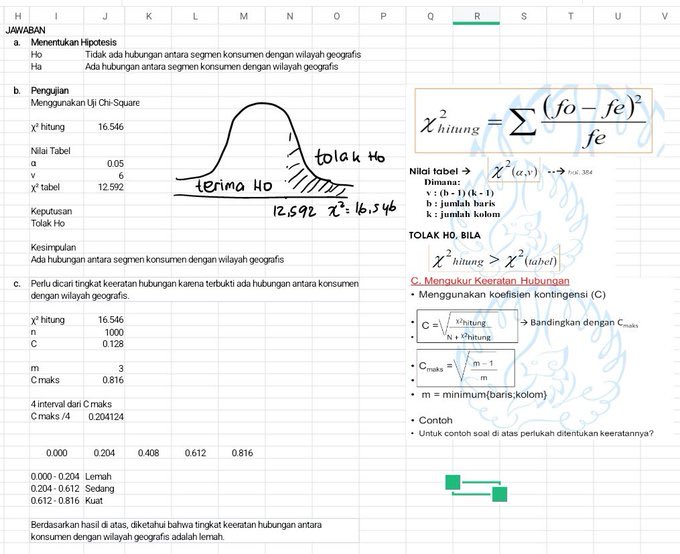 H I J K L M N O P Q R S T U V
JAWABAN
a. Menentukan Hipotesis
Ho Tidak ada hubungan antara segmen konsumen dengan wilayah geografis
Ha Ada hubungan antara segmen konsumen dengan wilayah geografis
b. Pengujian
Menggunakan Uji Chi-Square
χ² hitung 16.546
Nilai Tabel
α 0.05
v 6
χ² tabel 12.592
Keputusan
Tolak Ho
Kesimpulan
Ada hubungan antara segmen konsumen dengan wilayah geografis
terima Ho
tolak Ho
12,592 χ² = 16,546
c. Perlu dicari tingkat keeratan hubungan karena terbukti ada hubungan antara konsumen
dengan wilayah geografis.
χ² hitung 16.546
n 1000
C 0.128
m 3
C maks 0.816
4 interval dari C maks
C maks /4 0.204124
0.000 0.204 0.408 0.612 0.816
0.000 - 0.204 Lemah
0.204 - 0.612 Sedang
0.612 - 0.816 Kuat
Berdasarkan hasil di atas, diketahui bahwa tingkat keeratan hubungan antara
konsumen dengan wilayah geografis adalah lemah.
χ² hitung = ∑ (fo − fe)² / fe
Nilai tabel → χ² (α,v) --→ hal. 384
Dimana:
v : (b - 1) (k - 1)
b : jumlah baris
k : jumlah kolom
TOLAK H0, BILA
χ² hitung > χ² (tabel)
C. Mengukur Keeratan Hubungan
• Menggunakan koefisien kontingensi (C)
• C = √ χ²hitung / N + χ²hitung → Bandingkan dengan Cmaks
• Cmaks = √ m − 1 / m
• m = minimum{baris;kolom}
• Contoh
• Untuk contoh soal di atas perlukah ditentukan keeratannya?